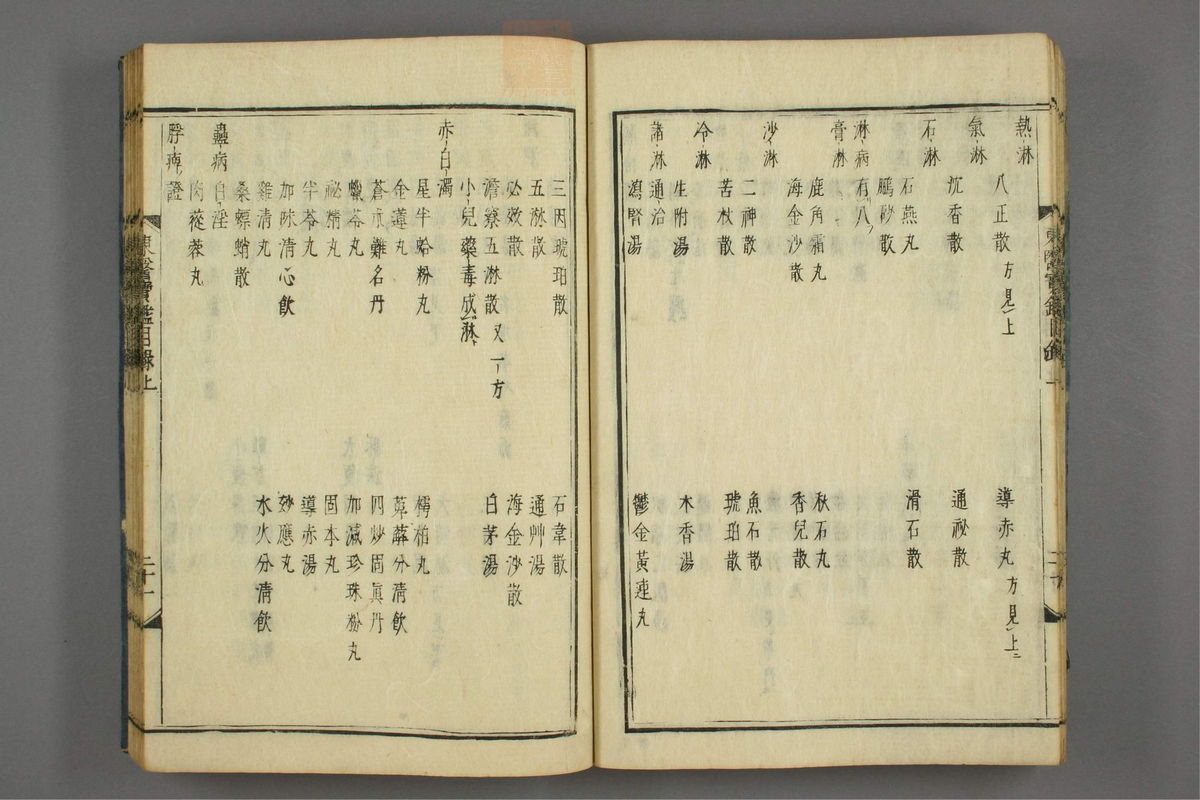 熱淋
八正散方見上
導赤丸方見上
氣淋
沉香散
通祕散
石淋
石燕丸
滑石散
鵬砂散
淋病有八
膏淋
鹿角霜丸
秋石丸
海金沙散
香兒散
沙淋
二神散
魚石散
苦杖散
琥珀散
冷淋
生附湯
木香湯
諸淋通治
瀉腎湯
鬱金黃連丸
三因琥珀散
石韋散
五淋散
通艸湯
必效散
海金沙散
澹寮五淋散又一方
白茅湯
小兒藥毒成淋
赤白濁
星半蛤粉丸
樗柏丸
金蓮丸
萆薢分淸飮
蒼朮難名丹
四炒固眞丹
蠟苓丸
加減珍珠粉丸
祕精丸
固本丸
半苓丸
導赤湯
加味清心飮
妙應丸
雞清丸
水火分淸飮
桑螵蛸散
蠱病
白淫
肉蓯蓉丸
脬痺證
東醫寶鑑目錄上
二十一